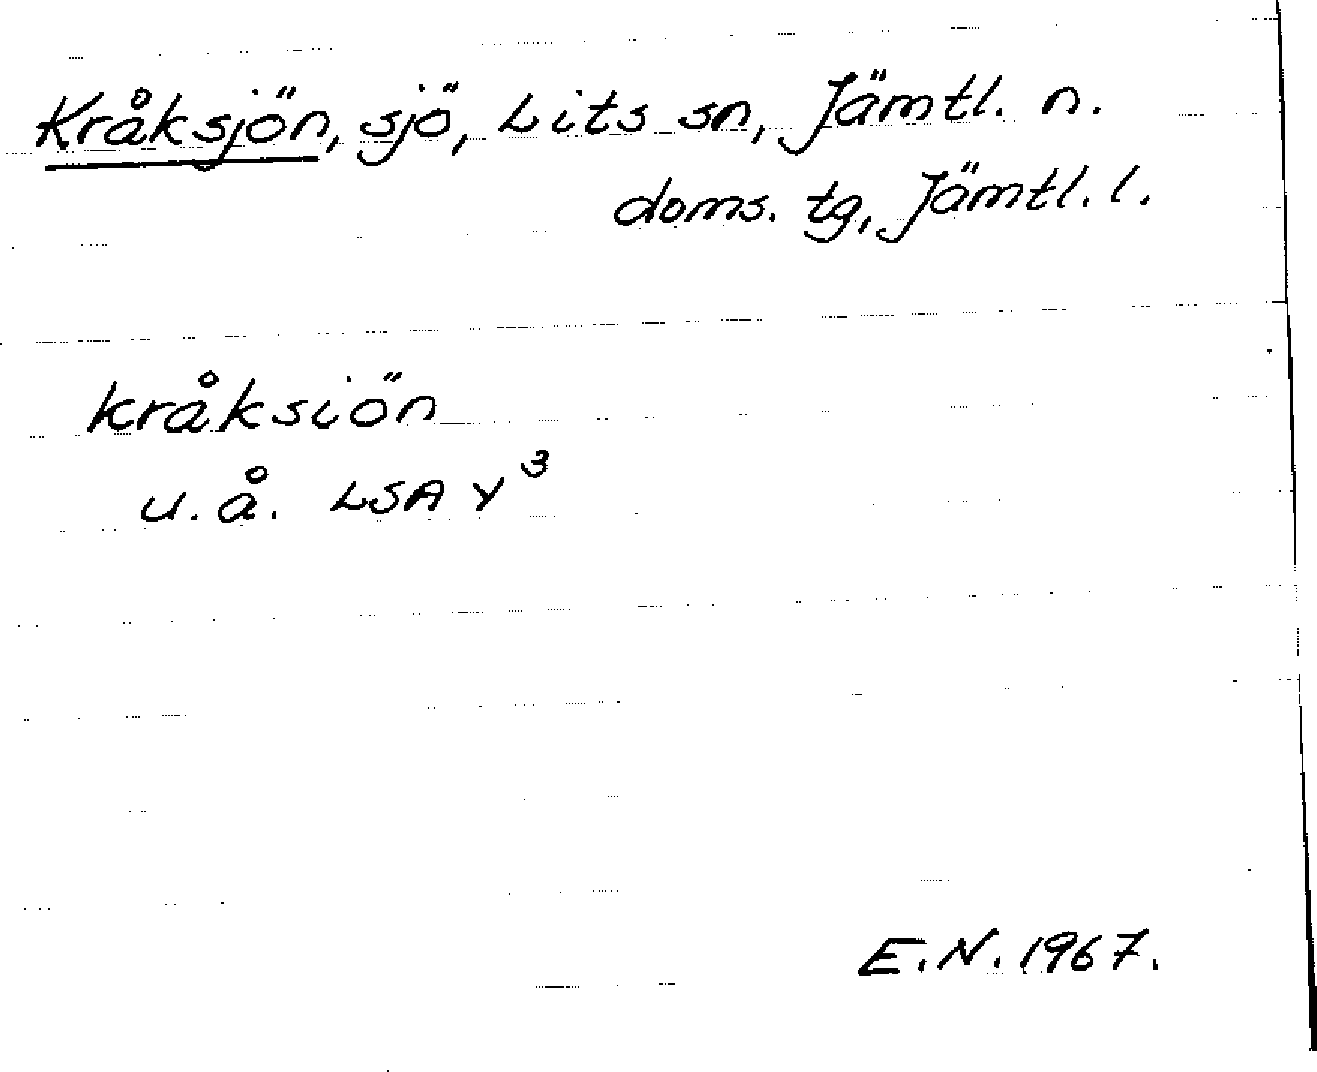 Kråksjön, sjö, Lits sn, Jämtl. n.
doms. tg, Jämtl. l.
kråksiön
u. å. LSA Y³
E. N. 1967.